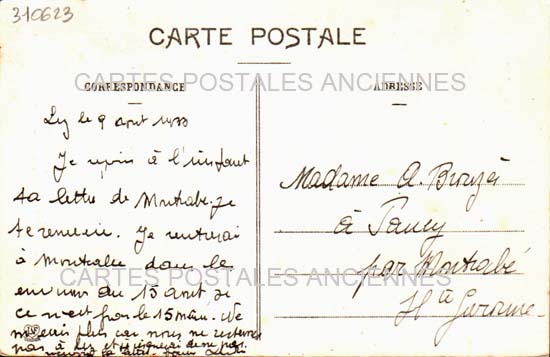 310623
CARTE POSTALE
CARTES POSTALES ANCIENNES
CORRESPONDANCE
ADRESSE
Luz le 9 août 1933
Je reçois à l'instant
ta lettre de Montrabe. Je
te remercie. Je rentrerai
à Montrabe dans les
environs du 15 août je
ce n'est pas le 15 même. Ne
plus car nous ne resterons
pas à Luz et
Madame A. Brouzès
à
par Montrabé
Hte Garonne
CARTES POSTALES ANCIENNES